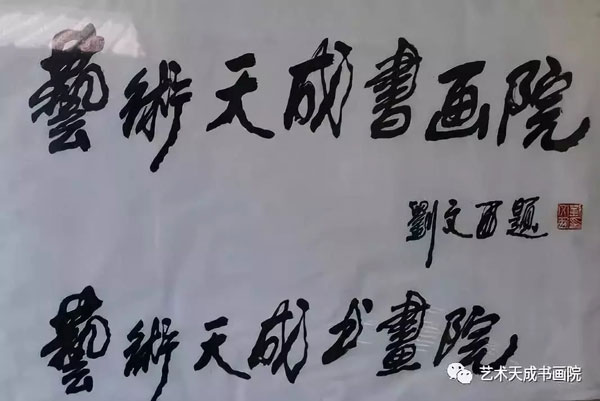 藝術天成書画院
劉文西題
藝術天成书畫院
艺术天成书画院